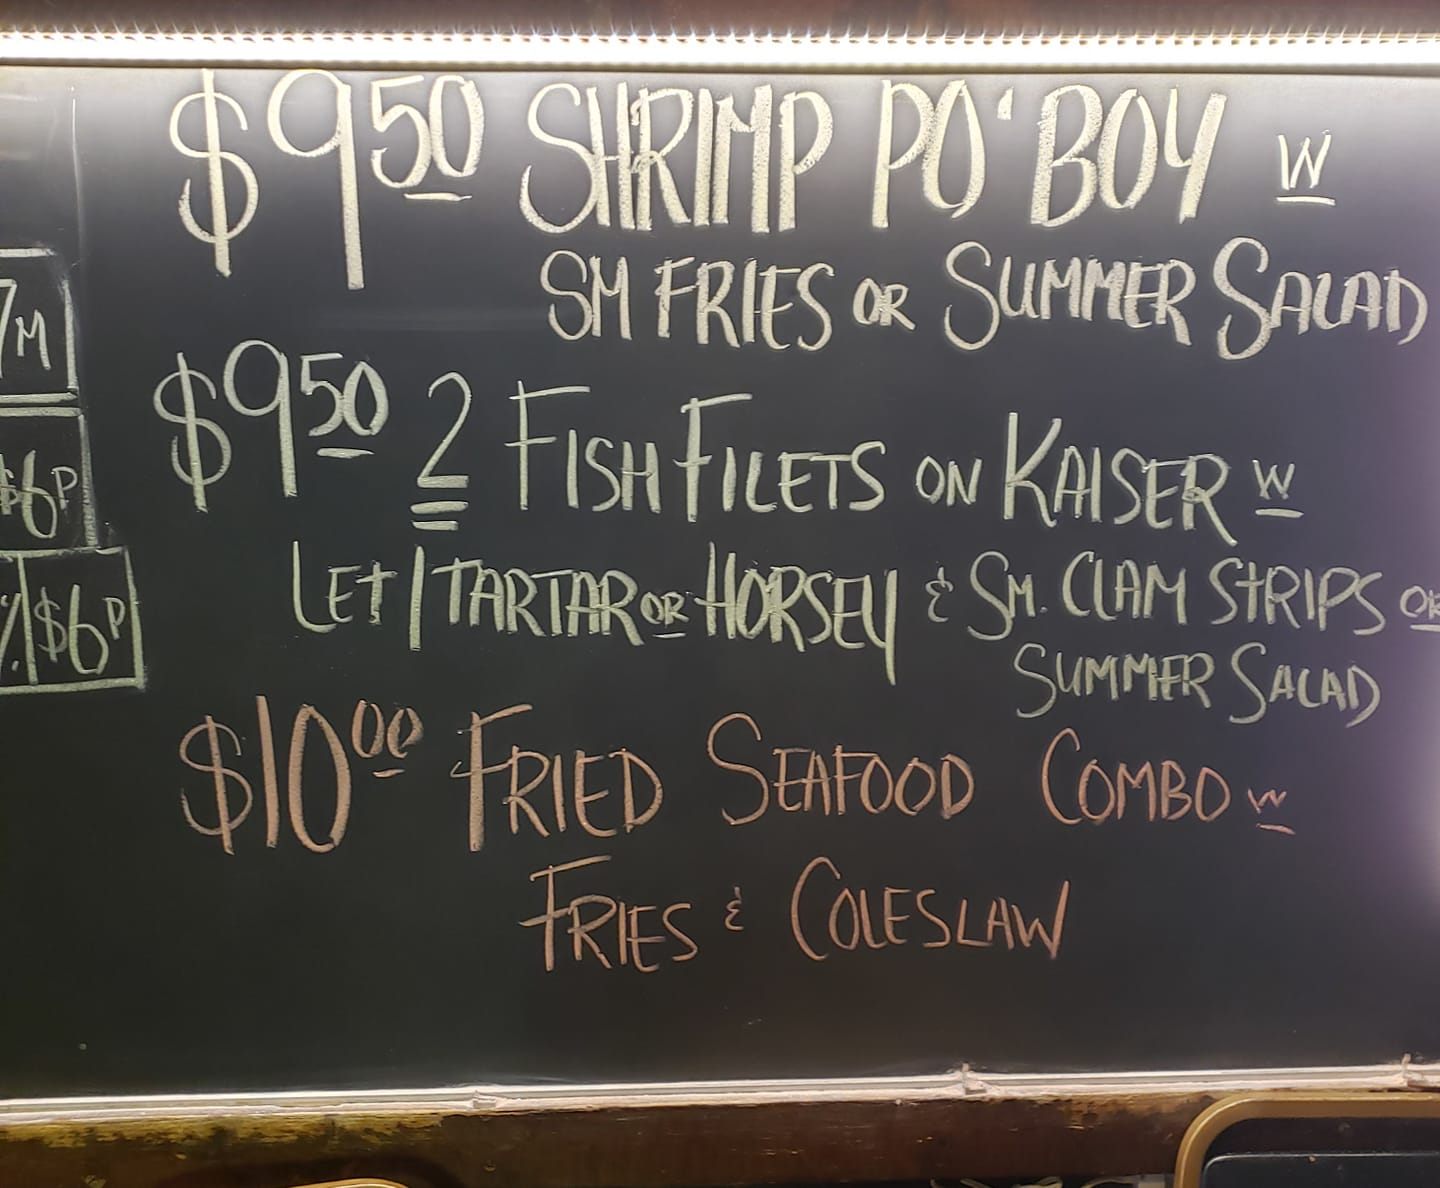 $9.50 SHRIMP PO'BOY W
SM FRIES OR SUMMER SALAD
7M
$9.50 2 FISH FILETS ON KAISER W
$6P
LET / TARTAR OR HORSEY & SM. CLAM STRIPS OR
$6P
SUMMER SALAD
$10.00 FRIED SEAFOOD COMBO W
FRIES & COLESLAW